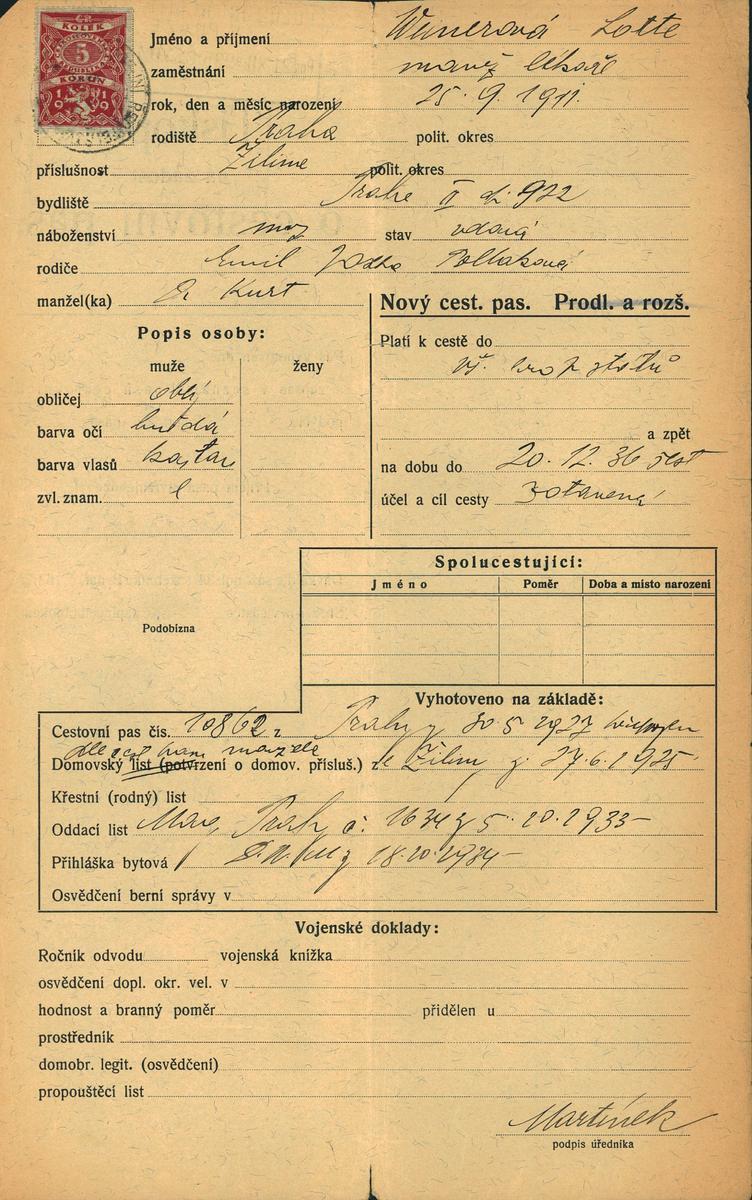 KOLEK
5
KORUN
1919
Jméno a příjmení Wienerová Lotte
zaměstnání manž. lékaře
rok, den a měsíc narození 25. 9. 1911.
rodiště Praha polit. okres
příslušnost Žilina polit. okres
bydliště Praha II 922
náboženství moj stav vdaná
rodiče Emil Pollaková
manžel(ka) Dr Kurt
Nový cest. pas. Prodl. a rozš.
Popis osoby:
muže ženy
obličej oblý
barva očí hnědá
barva vlasů kaštan
zvl. znam.
Platí k cestě do
vš. evrop států
a zpět
na dobu do 20. 12. 36
účel a cíl cesty zotavená
Spolucestující:
Jméno Poměr Doba a místo narození
Podobizna
Vyhotoveno na základě:
Cestovní pas čís. 10862 z Prahy z 30. 5. 1927
manžela
Domovský list (potvrzení o domov. přísluš.) ze Žiliny z. 27. 6. 1925
Křestní (rodný) list
Oddací list Praha č. 1634 z 5. 10. 1933
Přihláška bytová 18. 10. 1934
Osvědčení berní správy v
Vojenské doklady:
Ročník odvodu vojenská knížka
osvědčení dopl. okr. vel. v
hodnost a branný poměr přidělen u
prostředník
domobr. legit. (osvědčení)
propouštěcí list
Martínek
podpis úředníka